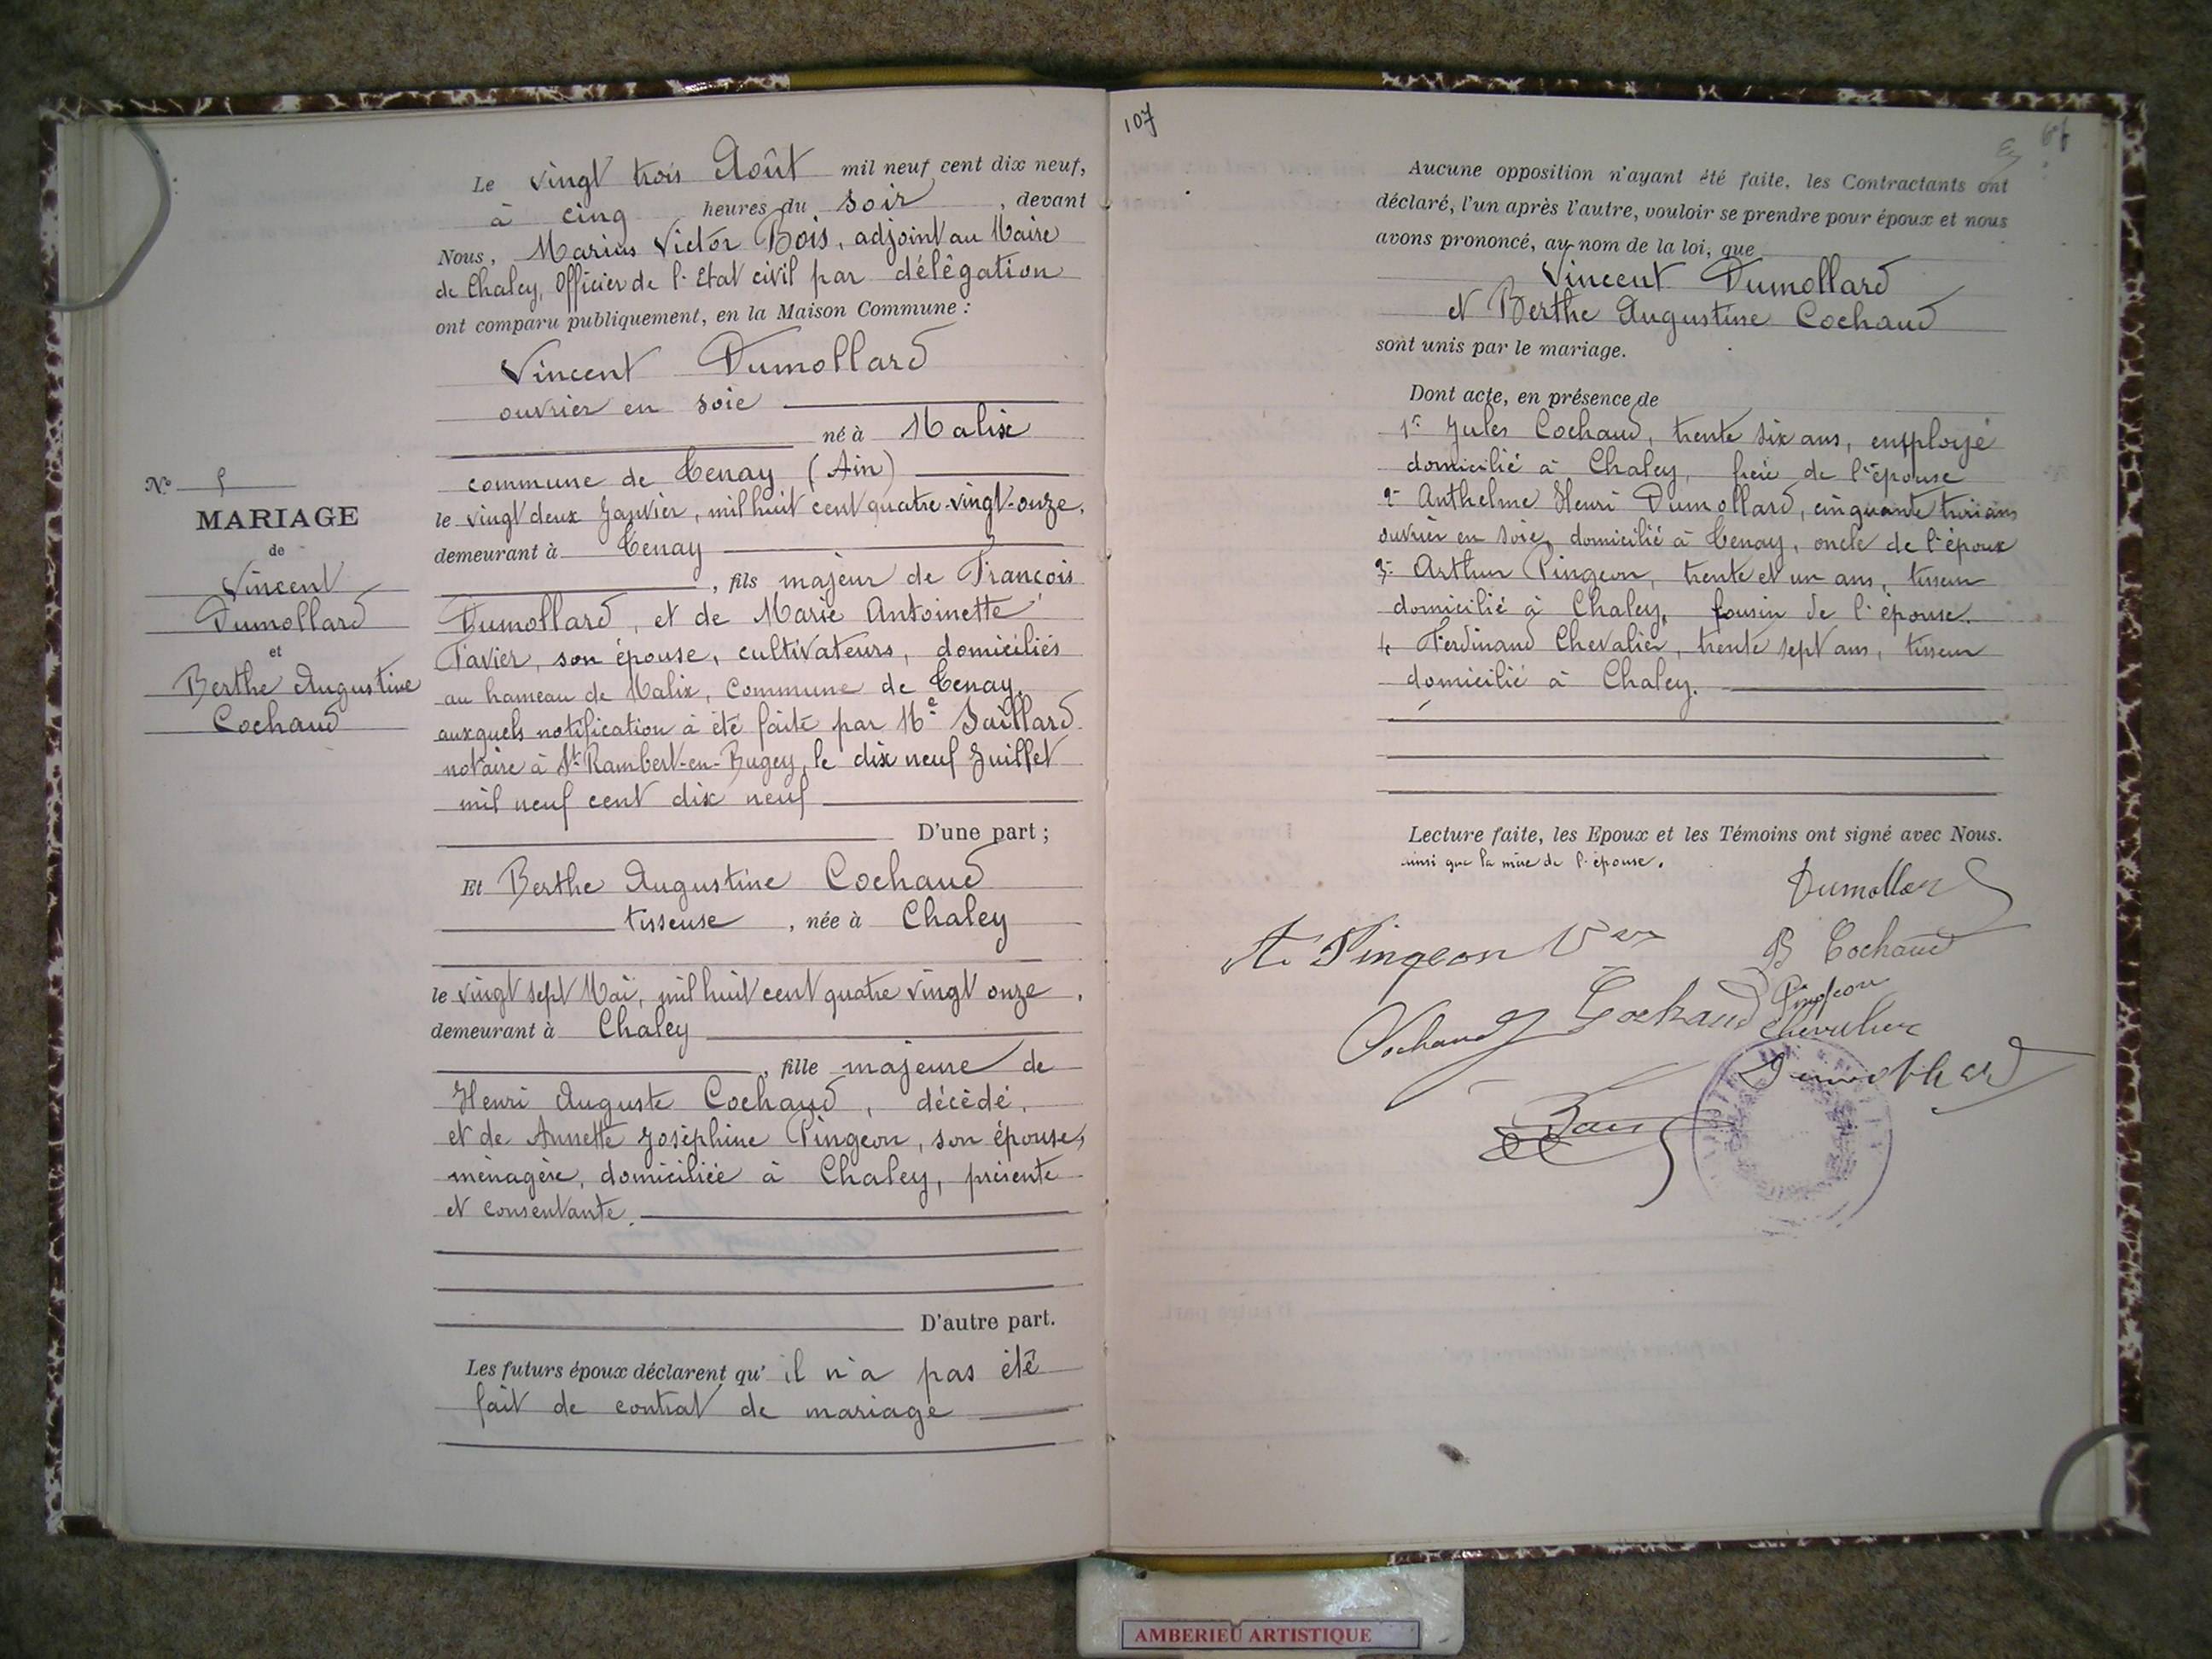 Nº 5
MARIAGE
de
Vincent
Dumollard
et
Berthe Augustine
Cochaud
Le vingt trois Août mil neuf cent dix neuf,
à cinq heures du soir, devant
Nous, Marius Victor Bois, adjoint au Maire
de Chaley, Officier de l'Etat civil par délégation
ont comparu publiquement, en la Maison Commune :
Vincent Dumollard
ouvrier en soie
né à Malix
commune de Tenay (Ain)
le vingt deux Janvier, mil huit cent quatre-vingt-onze,
demeurant à Tenay
, fils majeur de François
Dumollard, et de Marie Antoinette
Tavier, son épouse, cultivateurs, domiciliés
au hameau de Malix, Commune de Tenay,
auxquels notification a été faite par Me Saillard
notaire à St Rambert-en-Bugey, le dix neuf Juillet
mil neuf cent dix neuf
D'une part ;
Et Berthe Augustine Cochaud
tisseuse, née à Chaley
le vingt sept Mai, mil huit cent quatre vingt onze,
demeurant à Chaley
, fille majeure de
Henri Auguste Cochaud, décédé,
et de Annette Joséphine Pingeon, son épouse,
ménagère, domiciliée à Chaley, présente
et consentante.
D'autre part.
Les futurs époux déclarent qu'il n'a pas été
fait de contrat de mariage
107
Aucune opposition n'ayant été faite, les Contractants ont
déclaré, l'un après l'autre, vouloir se prendre pour époux et nous
avons prononcé, au nom de la loi, que
Vincent Dumollard
et Berthe Augustine Cochaud
sont unis par le mariage.
Dont acte, en présence de
1º Jules Cochaud, trente six ans, employé
domicilié à Chaley, frère de l'épouse
2º Anthelme Henri Dumollard, cinquante trois ans
ouvrier en soie, domicilié à Tenay, oncle de l'époux
3º Arthur Pingeon, trente et un ans, tisseur
domicilié à Chaley, cousin de l'épouse.
4º Ferdinand Chevalier, trente sept ans, tisseur
domicilié à Chaley.
Lecture faite, les Epoux et les Témoins ont signé avec Nous.
ainsi que la mère de l'épouse.
Dumollard
A. Pingeon
B Cochaud
Cochaud
Pingeon
Cochaud J
Chevalier
Dumollard
Bois
AMBERIEU ARTISTIQUE